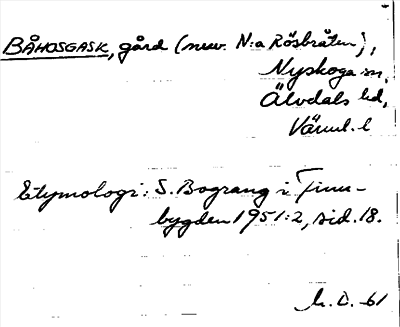 BÅHOSGASK, gård (nuv. N:a Rösbråten),
Nyskoga sn,
Älvdals hd,
Värml. l
Etymologi: S. Bograng i Finn-
bygden 1951:2, sid. 18.
h. D. -61